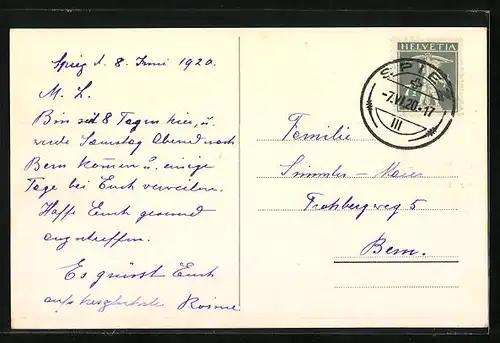 Spiez d. 8. Juni 1920.
M. L.
Bin seit 8 Tagen hier, u.
werde Samstag Abend nach
Bern kommen u. einige
Tage bei Euch verweilen.
Hoffe Euch gesund
anzutreffen.
Es grüsst Euch
aufs herzlichste
HELVETIA
SPIEZ
-7.VI.20.-17
III
Familie
Simmler-
5
Bern.